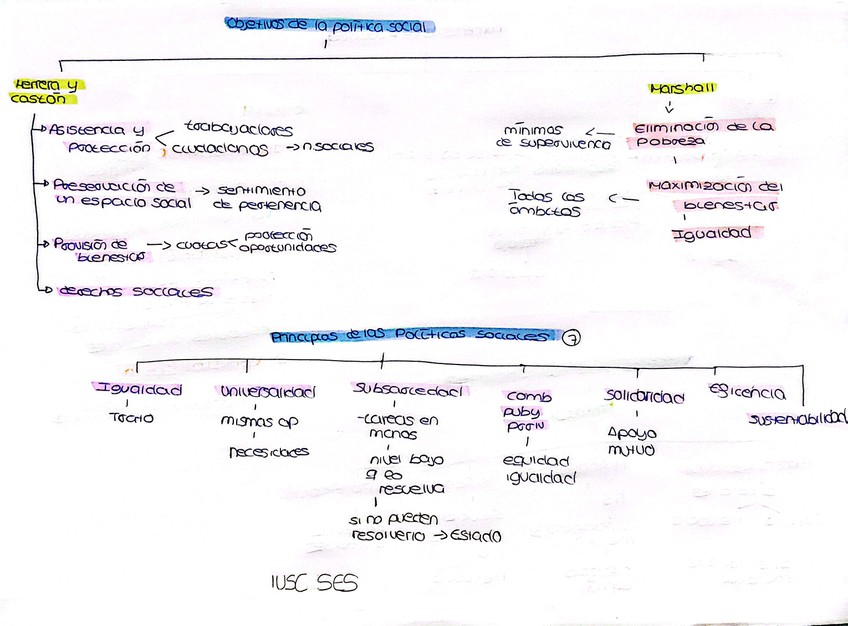 Objetivos de la política social
Herrera y
castón
Marshall
Asistencia y
protección
trabajadores
ciudadanos → n.sociales
Preservación de
un espacio social
→ sentimiento
de pertenencia
Provisión de
bienestar
→ cuotas
protección
oportunidades
derechos sociales
Eliminación de la
pobreza
mínimas
de supervivencia
Maximización del
bienestar
Todos los
ámbitos
Igualdad
Principios de las políticas sociales 7
Igualdad
Trato
universalidad
mismas op
necesidades
-tareas en
manos
nivel bajo
q lo
resuelva
si no pueden
resolverlo → Estado
comb
pub y
priv
equidad
igualdad
solidaridad
Apoyo
mutuo
eficencia
sustentabilidad
IUSC SES